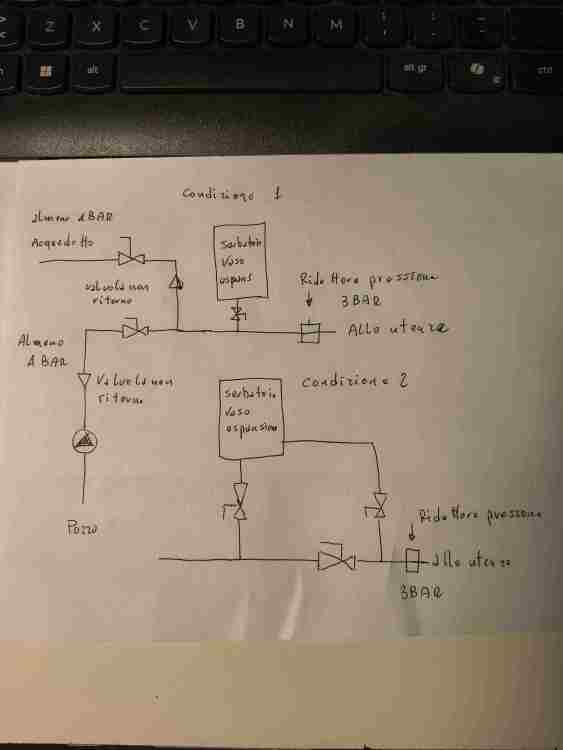 Z X C V B N M ; : _ -
alt
alt gr
ctrl
Condizione 1
almeno 1 BAR
Acquedotto
Serbatoio
Vaso
espans
Valvola non
ritorno
Riduttore pressione
3 BAR
Allo utenze
Almeno
1 BAR
Valvola non
ritorno
Pozzo
Condizione 2
Serbatoio
Vaso
espansion
Riduttore pressione
allo utenze
3 BAR